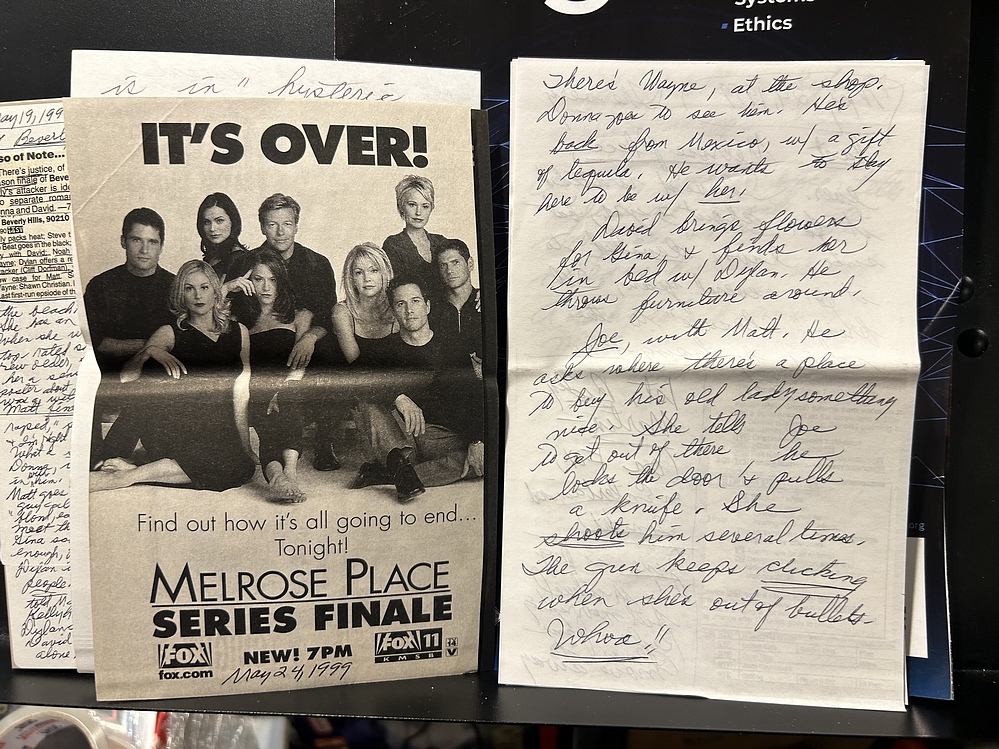 Systems
Ethics
is in" hysteria
May 19, 199
Beverl
so of Note...
There's justice, of
son finale of Beve
ly's attacker is ide
separate roma
nna and David. —7
Beverly Hills, 90210
ly packs heat; Steve t
Beat goes in the black;
y with David; Noah
ayne; Dylan offers a re
tacker (Cliff Dorfman).
ew case for Matt. S
ayne: Shawn Christian. I
ast first-run episode of th
the beach
She has an
when she w
top rated s
new older,
her a
poster about
Matt
raped,"
What's
Donna,
in him.
Matt goes
meet th
Gina so
enough,
Dylan is
people.
told
Kelly
Dylan
David
alone
IT'S OVER!
Find out how it's all going to end...
Tonight!
MELROSE PLACE
SERIES FINALE
FOX
fox.com
NEW! 7PM
FOX 11
KMSB
14
V
May 24, 1999
There's Wayne, at the shop.
Donna goes to see him. He's
back from Mexico, w/ a gift
of tequila. He wants to stay
here to be w/ her.
David brings flowers
for Gina, & finds her
in bed w/ Dylan. He
throws furniture around.
Joe, with Matt. He
asks where there's a place
to buy his old lady something
nice. She tells Joe
to get out of there he
locks the door & pulls
a knife. She
shoots him several times.
The gun keeps clicking
when she's out of bullets.
Whoa!!
org